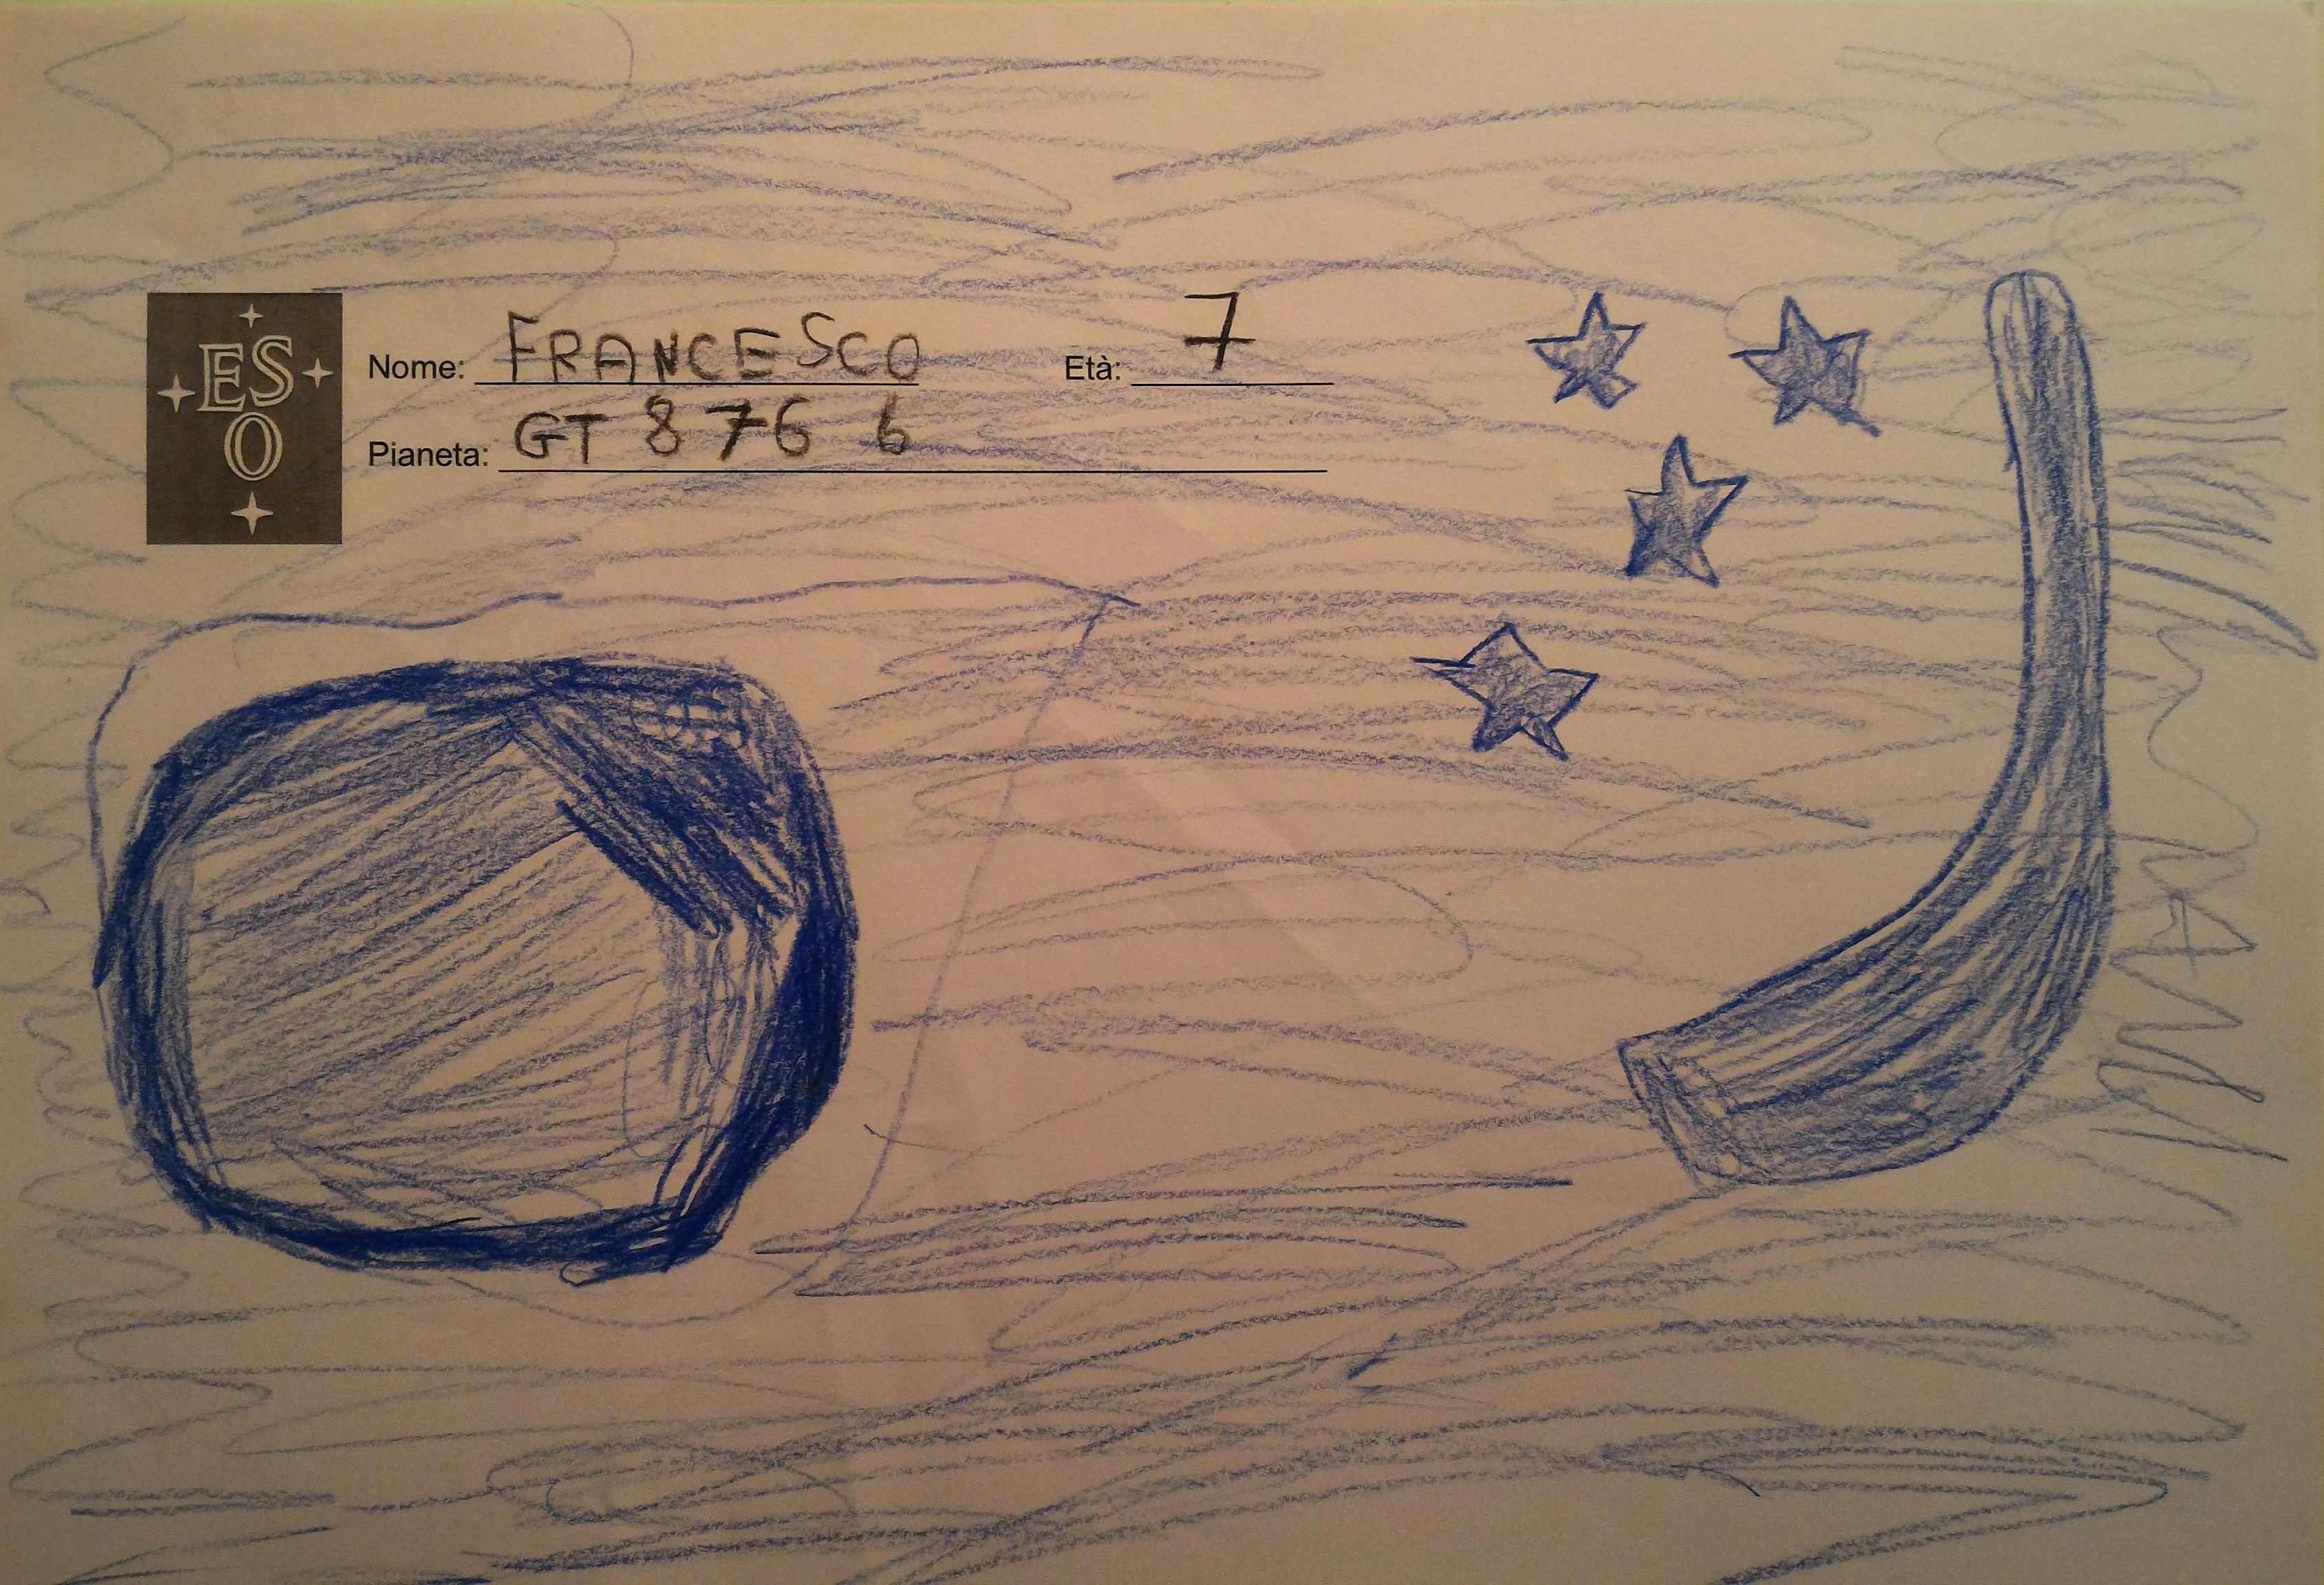 ESO
Nome: FRANCESCO Età: 7
Pianeta: GT 876 6